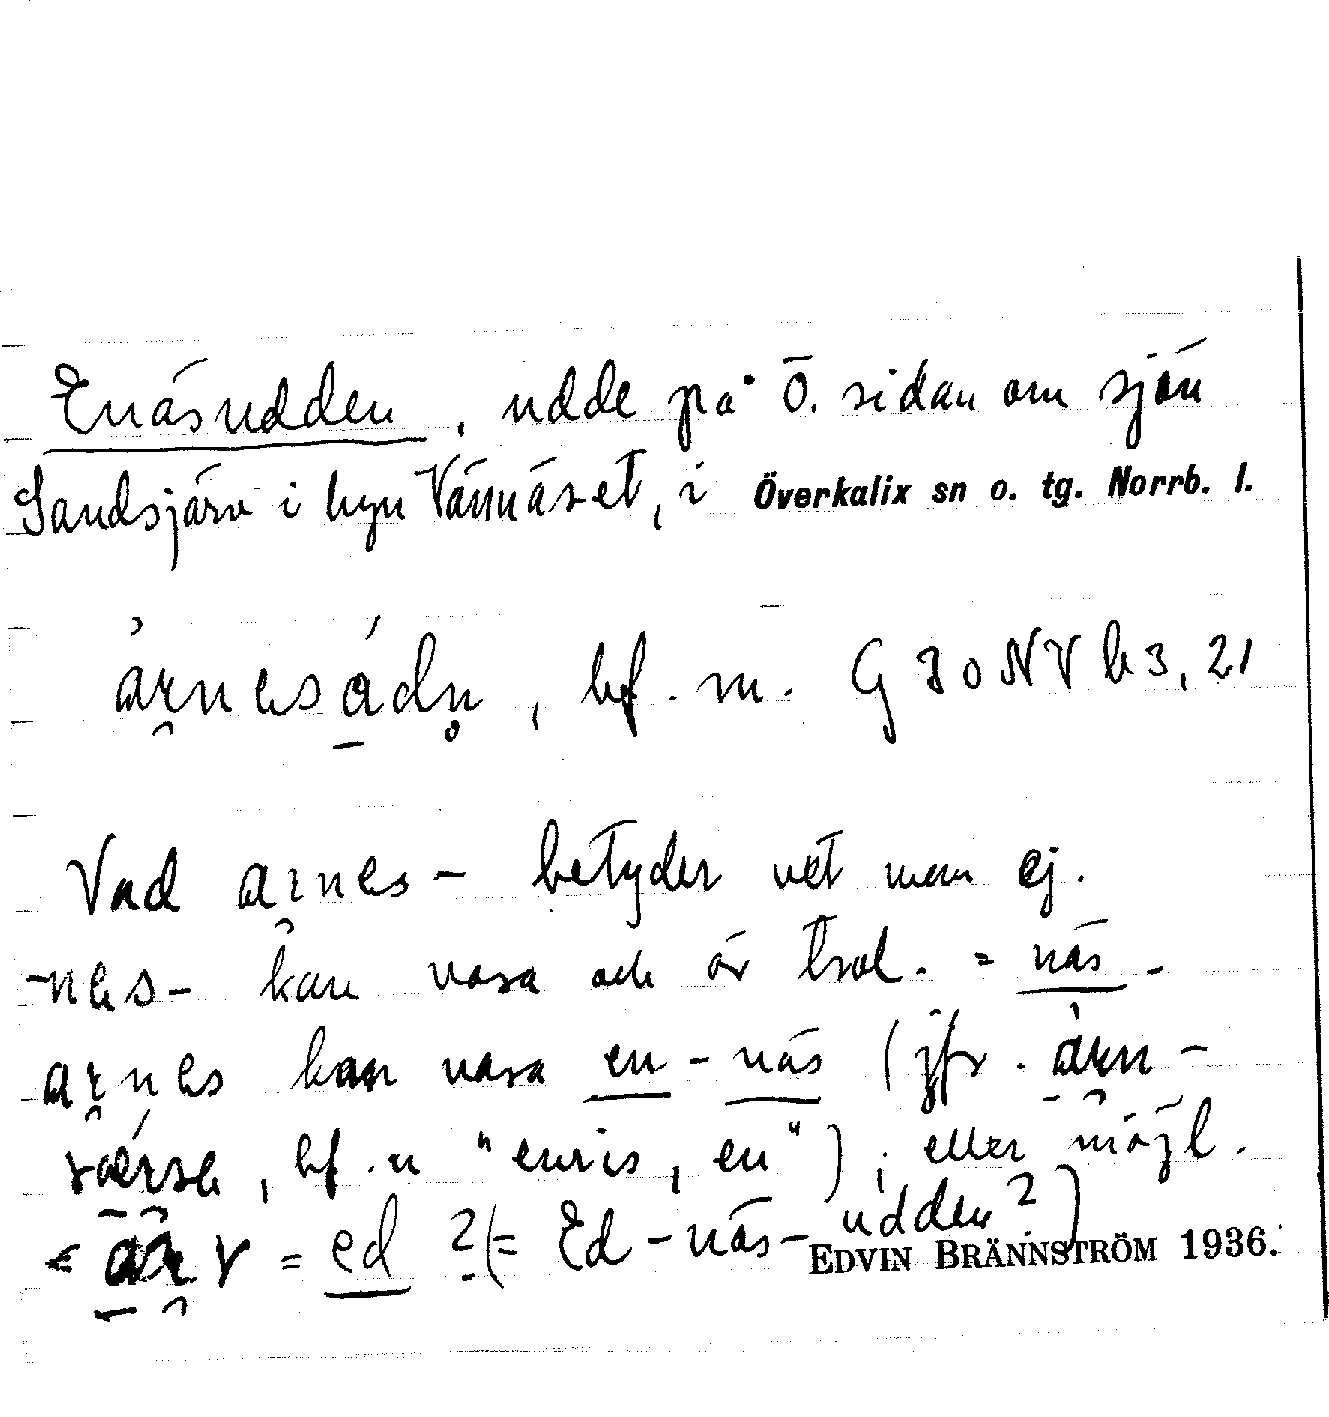 Enäsudden, udde på Ö. sidan om sjön
Sandsjärv i byn Vännäset, i Överkalix sn o. tg. Norrb. l.
, bf. m. G 30 NV b 3, 21
Vad arnes- betyder vet man ej.
-nes- kan vara och är trol. = näs-
arnes kan vara en-näs (jfr. arn-
, bf. n "enris, en"); eller möjl.
= ed ? (= Ed-näs-udden?)
EDVIN BRÄNNSTRÖM 1936.